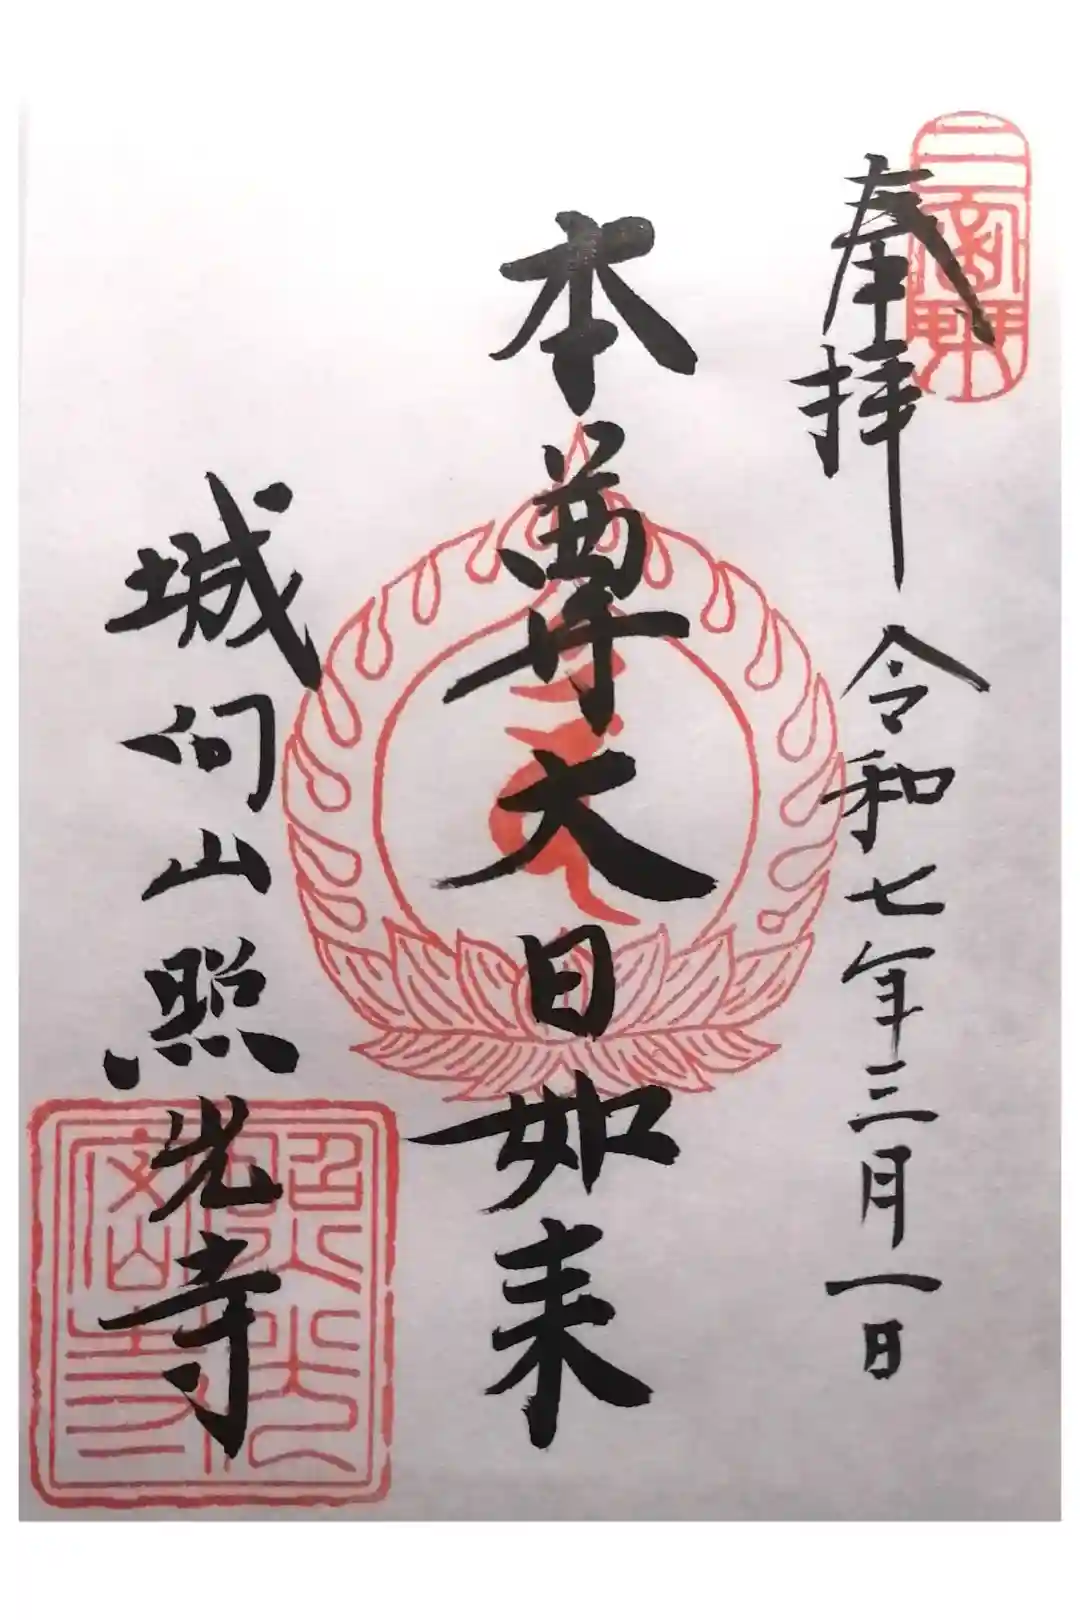 奉拝 令和七年三月一日
本尊大日如来
城向山照光寺